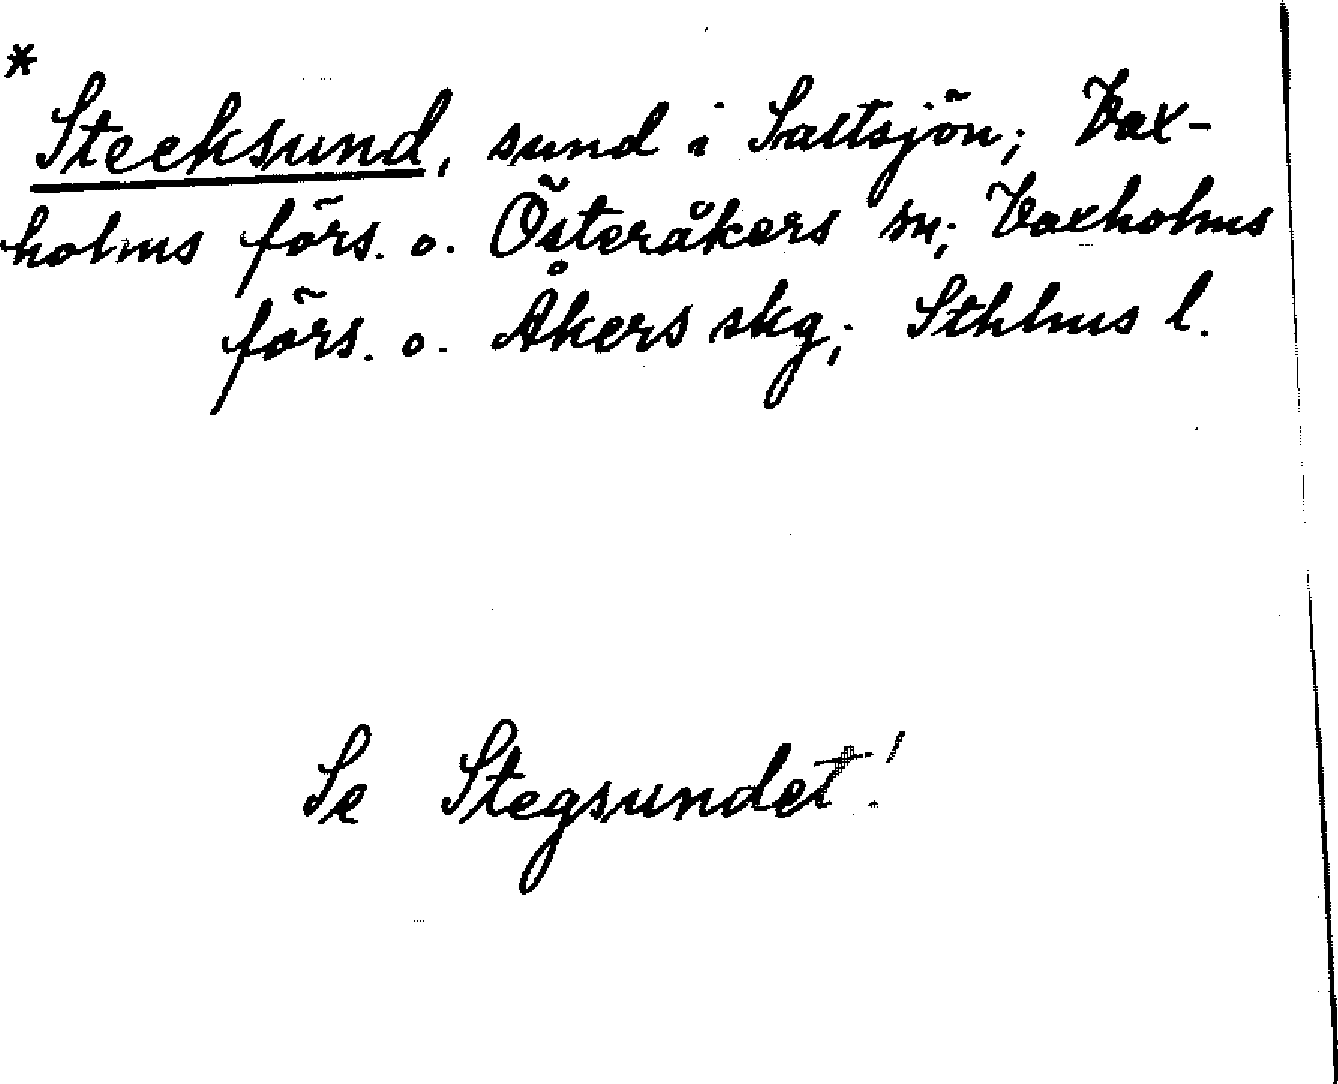 * Stecksund, sund i Saltsjön; Vax-
holms förs. o. Österåkers sn; Vaxholms
förs. o. Åkers skg; Sthlms l.
Se Stegsundet!